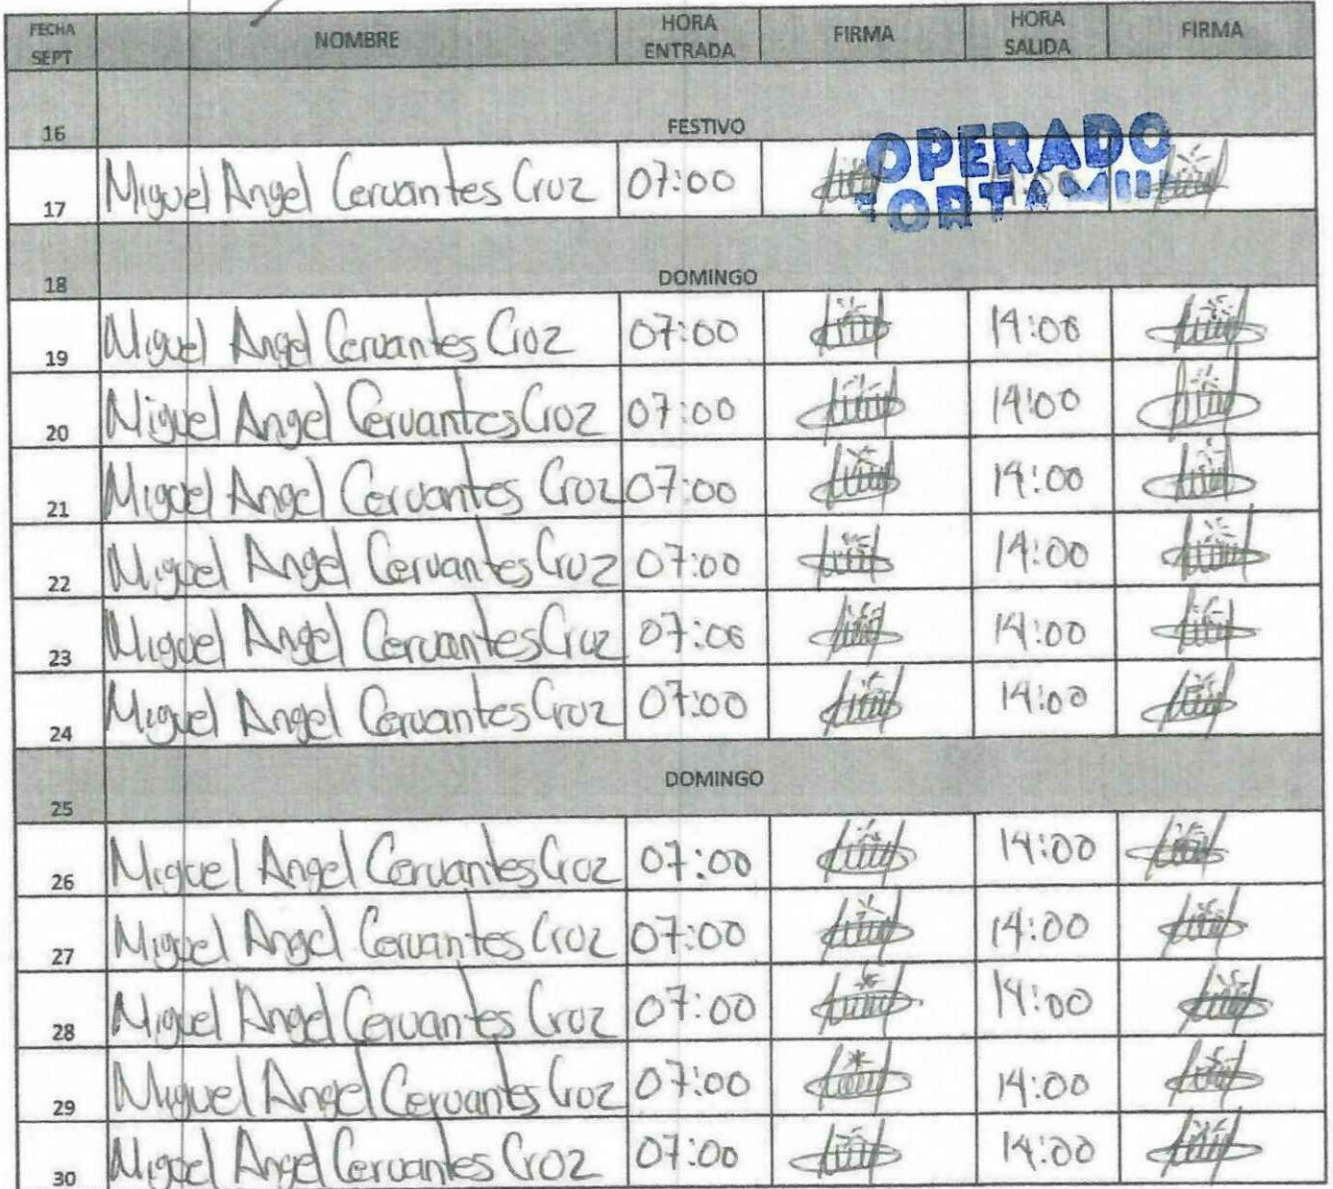 FECHA SEPT NOMBRE HORA ENTRADA FIRMA HORA SALIDA FIRMA
16 FESTIVO
OPERADO
17 Miguel Angel Cervantes Cruz 07:00
18 DOMINGO
19 Miguel Angel Cervantes Cruz 07:00 14:00
20 Miguel Angel Cervantes Cruz 07:00 14:00
21 Miguel Angel Cervantes Cruz 07:00 14:00
22 Miguel Angel Cervantes Cruz 07:00 14:00
23 Miguel Angel Cervantes Cruz 07:00 14:00
24 Miguel Angel Cervantes Cruz 07:00 14:00
25 DOMINGO
26 Miguel Angel Cervantes Cruz 07:00 14:00
27 Miguel Angel Cervantes Cruz 07:00 14:00
28 Miguel Angel Cervantes Cruz 07:00 14:00
29 Miguel Angel Cervantes Cruz 07:00 14:00
30 Miguel Angel Cervantes Cruz 07:00 14:00